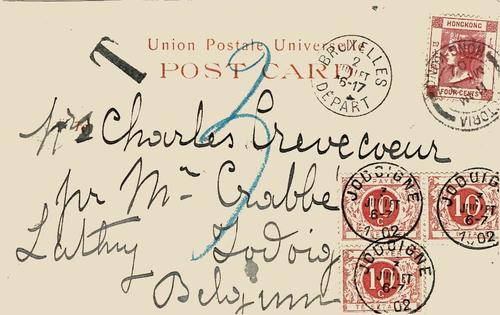 T
Union Postale Universelle
POST CARD
3
BRUXELLES
2
JUILLET
6-17
DÉPART
HONGKONG
FOUR CENTS
VICTORIA
HONG KONG
Charles Crevecoeur
pr Mr Crabbe
Lathuy Jodoig
Belgium
JODOIGNE
3
JUILLET
6-7
1902
10
JODOIGNE
3
JUILLET
6-7
1902
10
JODOIGNE
3
JUILLET
6-7
1902
10